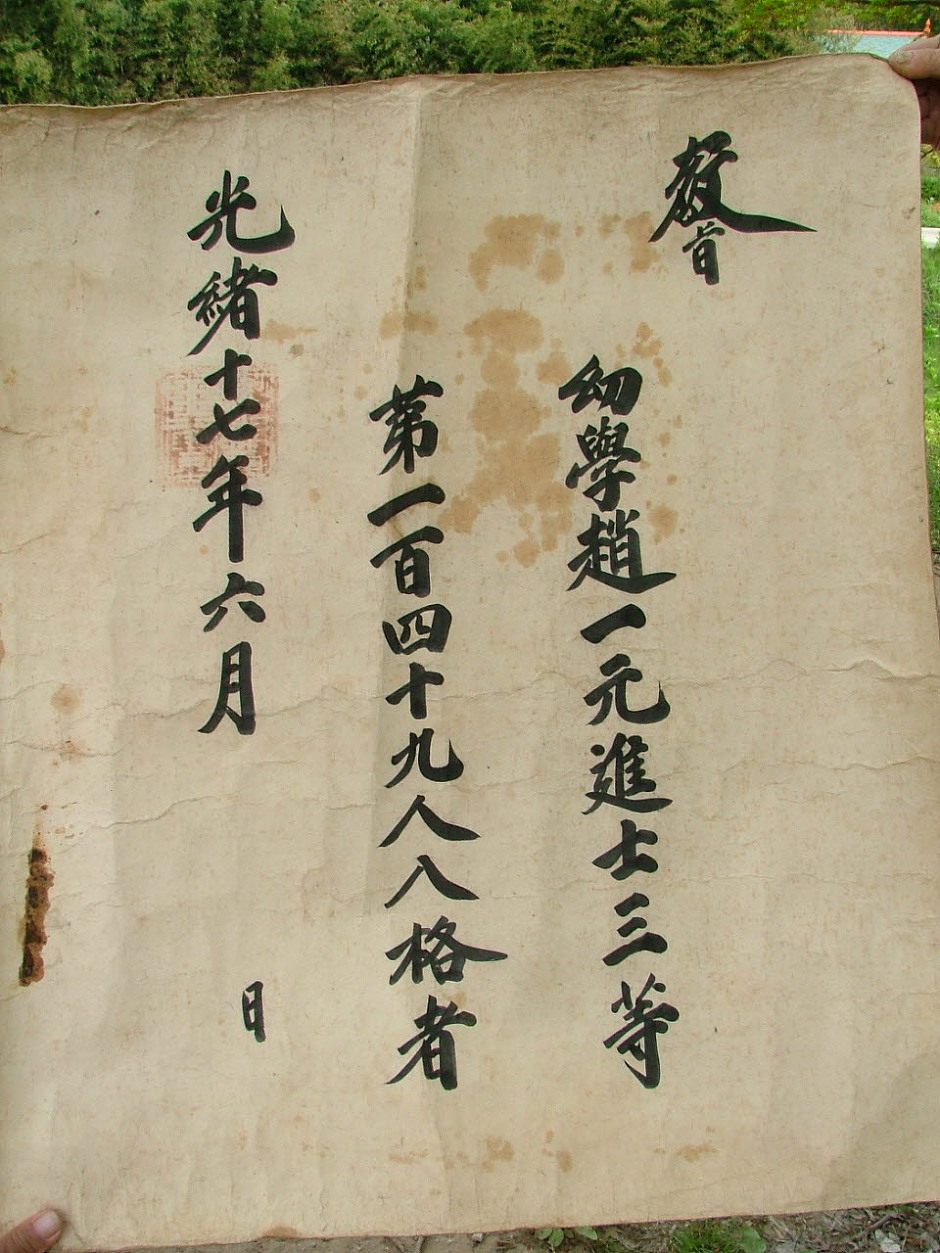 敎旨
幼學趙一元進士三等
第一百四十九人入格者
光緖十七年六月 日